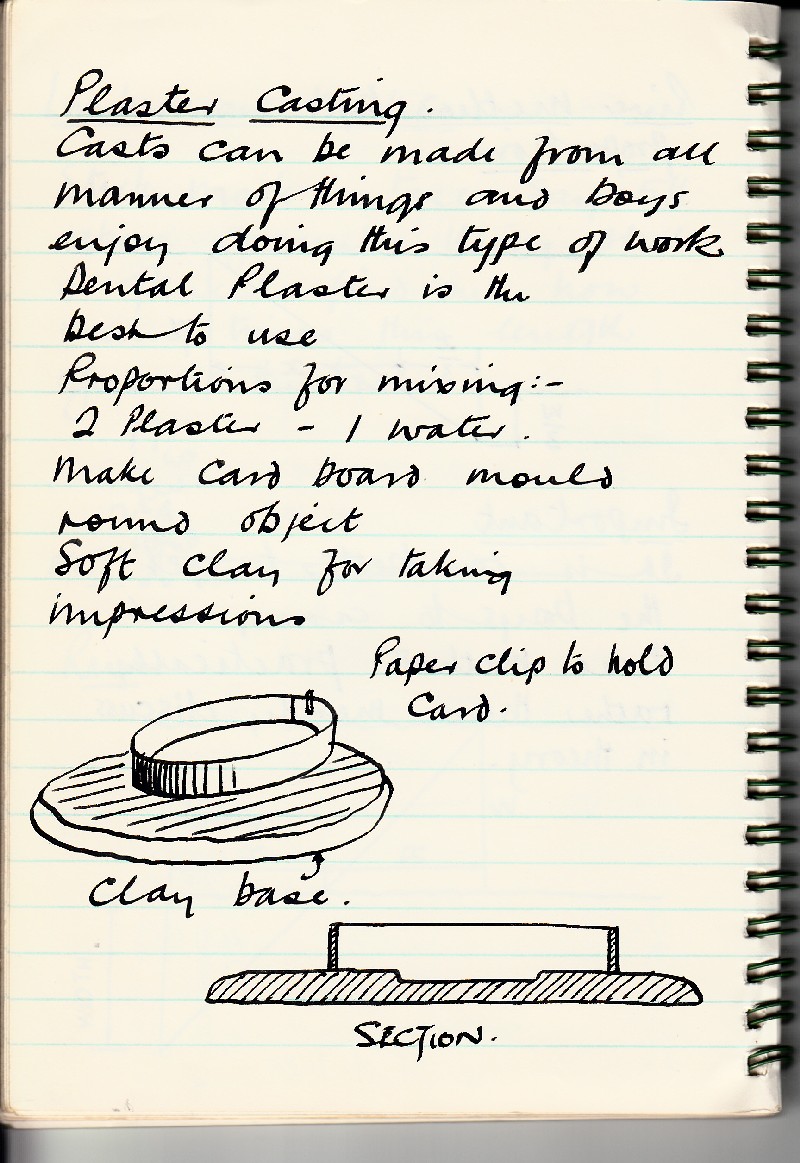 Plaster Casting.
Casts can be made from all
manner of things and boys
enjoy doing this type of work
Dental Plaster is the
best to use
Proportions for mixing:-
2 Plaster - 1 water.
Make card board mould
round object
Soft clay for taking
impressions
Paper clip to hold
Card.
Clay base.
SECTION.